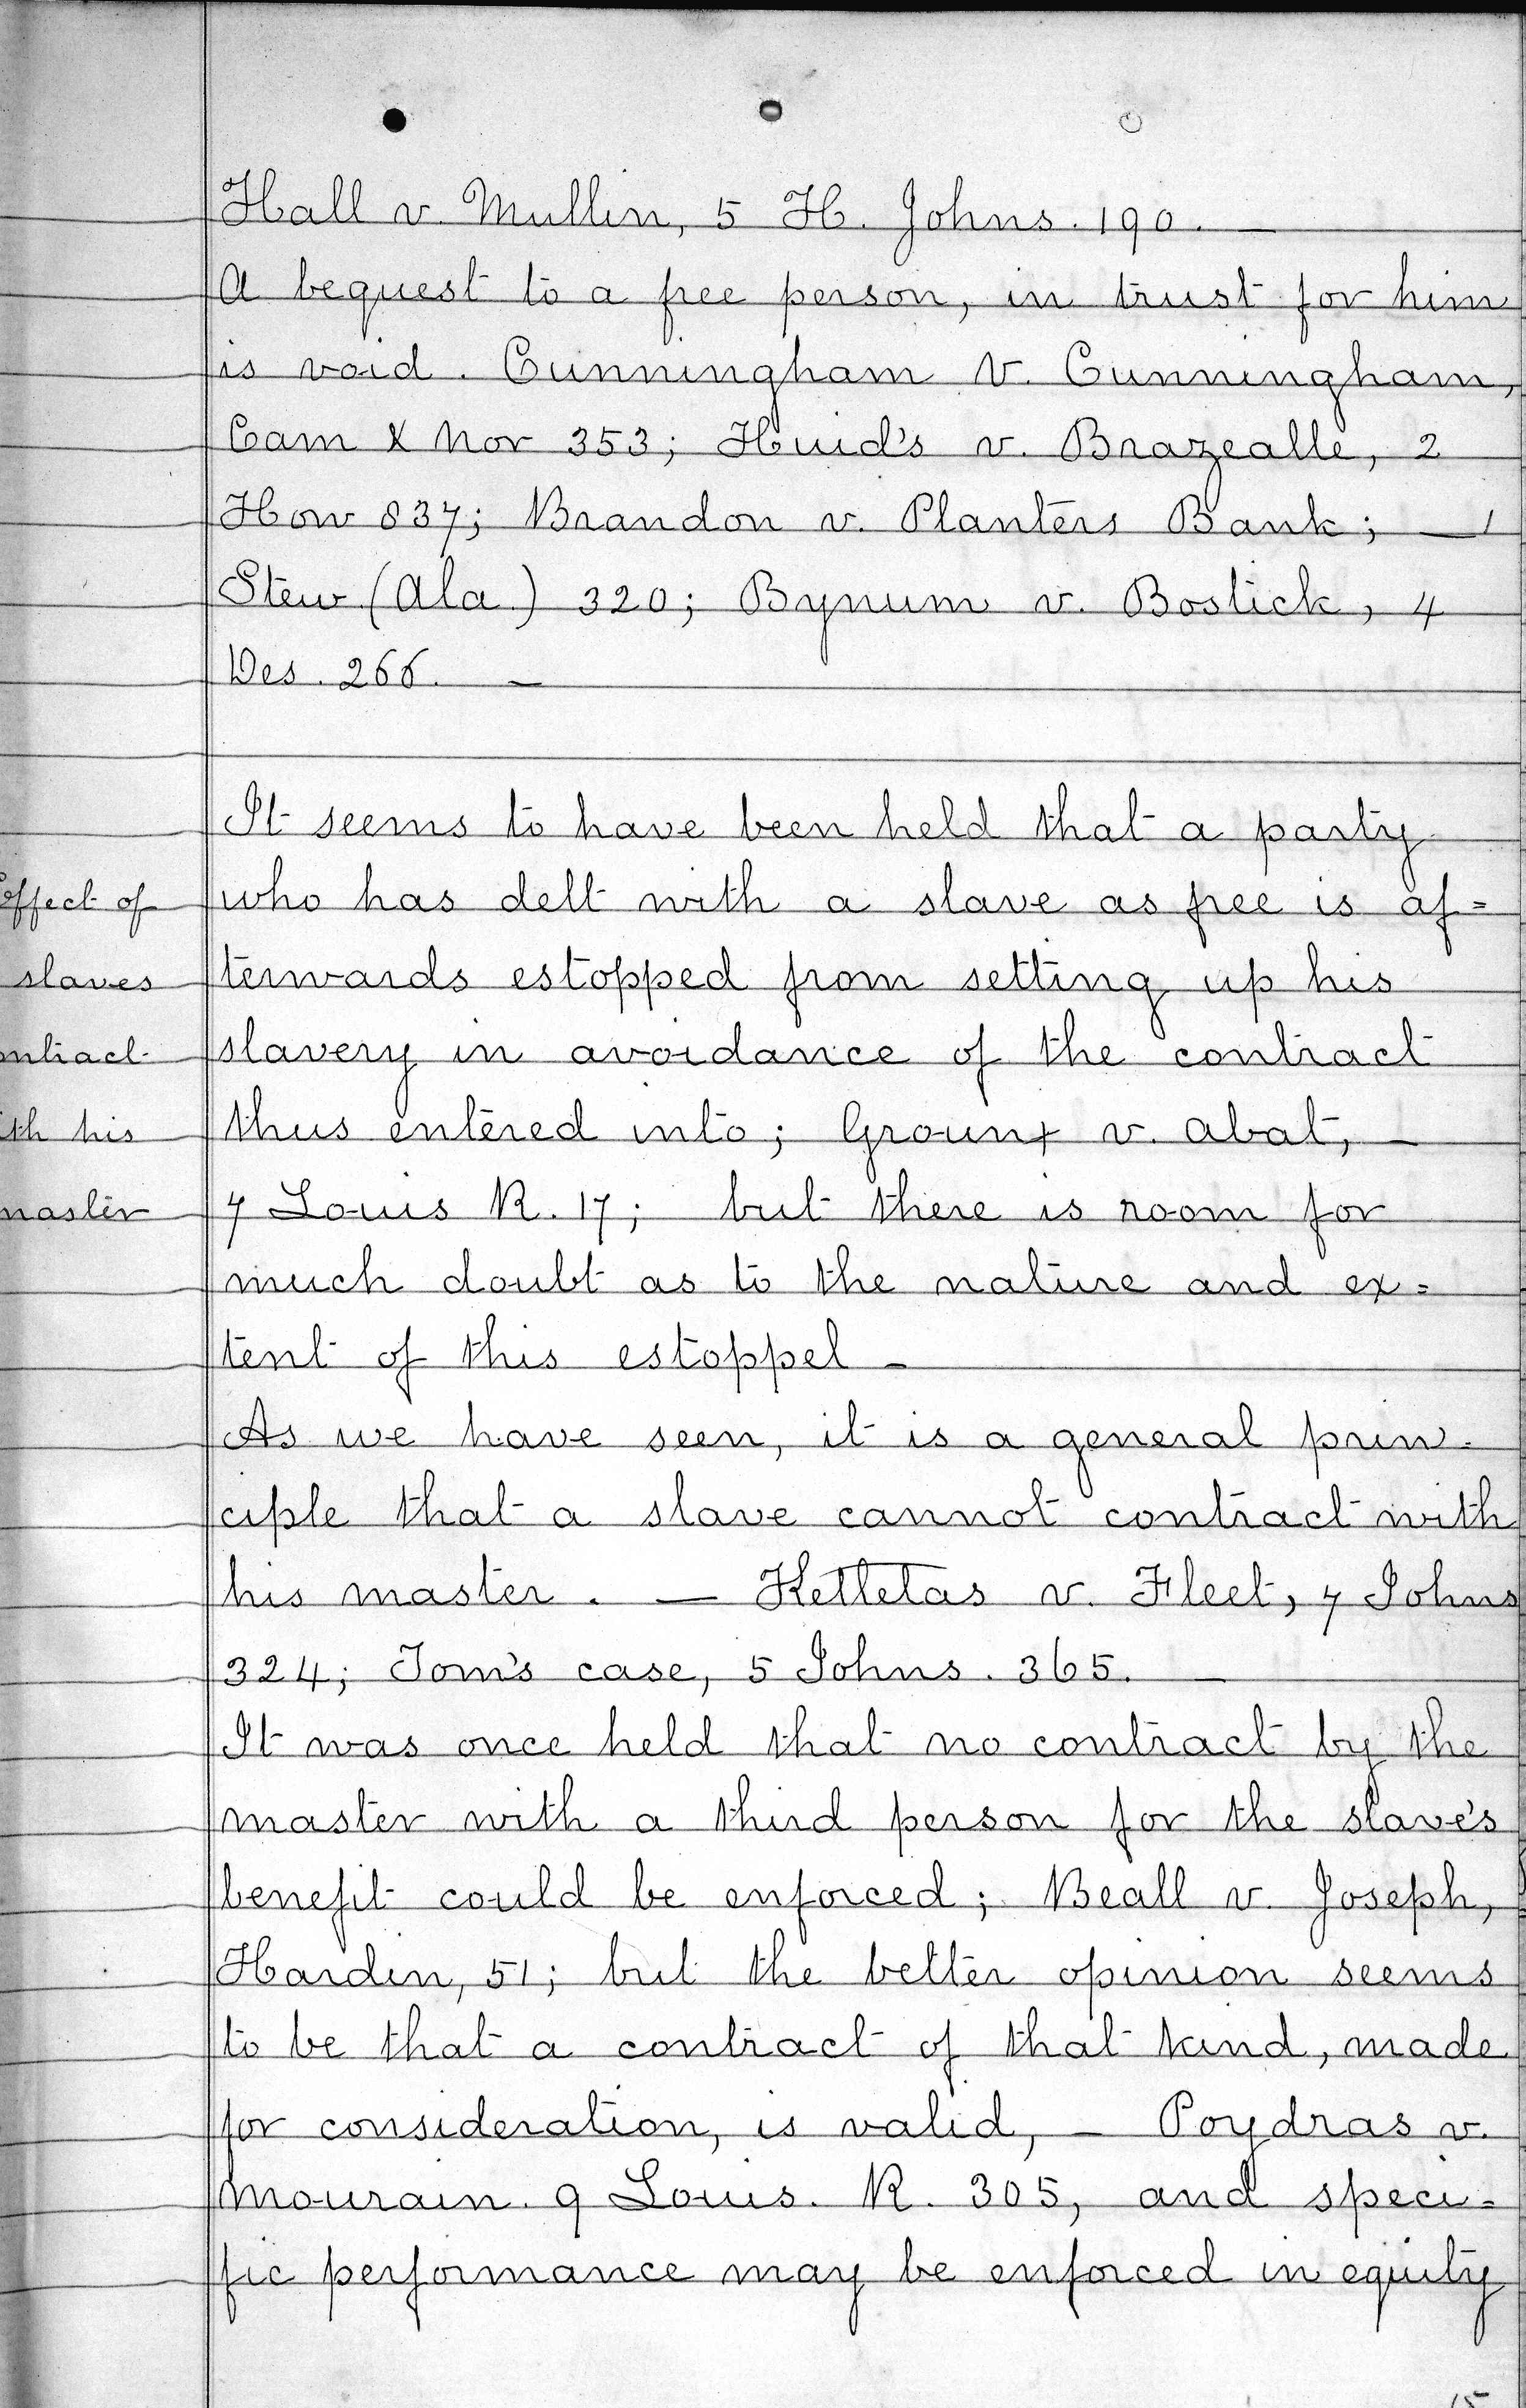 Hall v. Mullin, 5 H. Johns. 190. —
A bequest to a free person, in trust for him
is void. Cunningham v. Cunningham,
Cam & Nor 353; Huid's v. Brazealle, 2
How 837; Brandon v. Planters Bank; — 1
Stew. (Ala.) 320; Bynum v. Bostick, 4
Des. 266. —
It seems to have been held that a party
who has delt with a slave as free is af=
terwards estopped from setting up his
slavery in avoidance of the contract
thus entered into; Grounx v. Abat, —
7 Louis R. 17; but there is room for
much doubt as to the nature and ex=
tent of this estoppel —
As we have seen, it is a general prin-
ciple that a slave cannot contract with
his master. — Kettletas v. Fleet, 7 Johns
324; Tom's case, 5 Johns. 365. —
It was once held that no contract by the
master with a third person for the slave's
benefit could be enforced; Beall v. Joseph,
Hardin, 51; but the better opinion seems
to be that a contract of that kind, made
for consideration, is valid, — Poydras v.
Mourain. 9 Louis. R. 305, and speci=
fic performance may be enforced in equity
Effect of
slaves
ontract
ith his
master
15